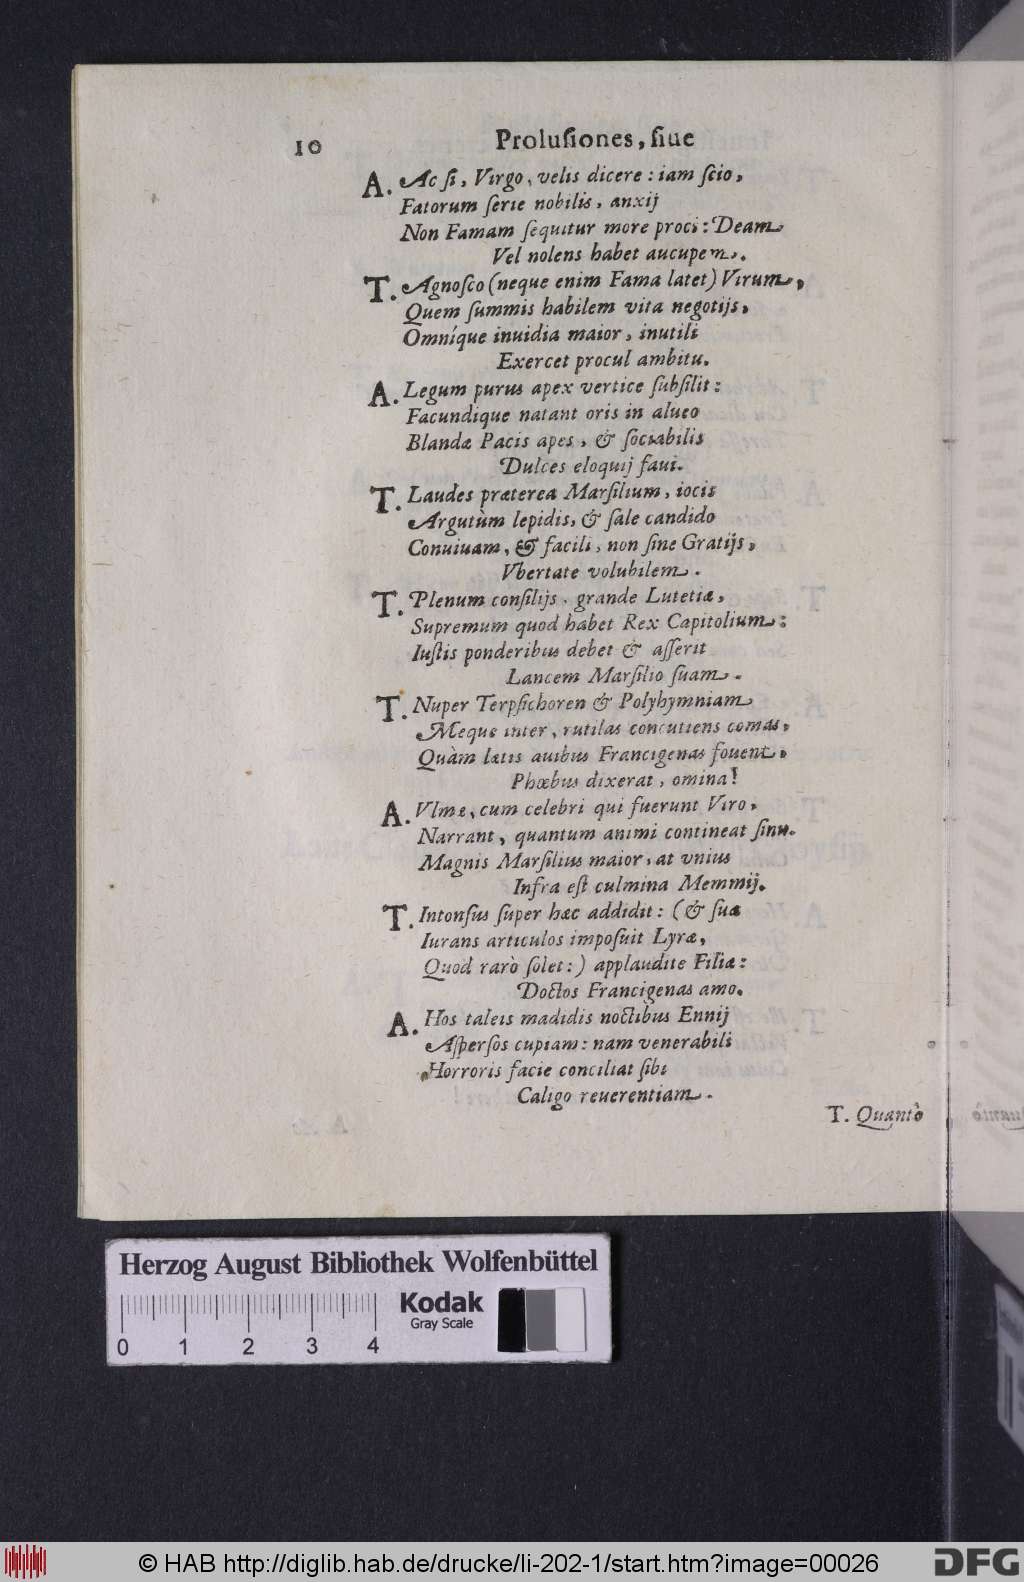 10 Prolusiones, siue
A. Ac si, Virgo, velis dicere: iam scio,
Fatorum serie nobilis, anxij
Non Famam sequitur more proci: Deam
Vel nolens habet aucupem.
T. Agnosco (neque enim Fama latet) Virum,
Quem summis habilem vita negotijs,
Omníque inuidia maior, inutili
Exercet procul ambitu.
A. Legum purus apex vertice subsilit:
Facundique natant oris in alueo
Blandæ Pacis apes, & sociabilis
Dulces eloquij faui.
T. Laudes præterea Marsilium, iocis
Argutùm lepidis, & sale candido
Conuiuam, & facili, non sine Gratijs,
Vbertate volubilem.
T. Plenum consilijs, grande Lutetiæ,
Supremum quod habet Rex Capitolium:
Iustis ponderibus debet & asserit
Lancem Marsilio suam.
T. Nuper Terpsichoren & Polyhymniam
Meque inter, rutilas concutiens comas,
Quàm lætis auibus Francigenas fouent,
Phœbus dixerat, omina!
A. Vlmæ, cum celebri qui fuerunt Viro,
Narrant, quantum animi contineat sinu.
Magnis Marsilius maior, at vnius
Infra est culmina Memmij.
T. Intonsus super hæc addidit: (& suæ
Iurans articulos imposuit Lyræ,
Quod rarò solet:) applaudite Filiæ:
Doctos Francigenas amo.
A. Hos taleis madidis noctibus Ennij
Aspersos cupiam: nam venerabili
Horroris facie conciliat sibi
Caligo reuerentiam.
T. Quantò
Herzog August Bibliothek Wolfenbüttel
Kodak
Gray Scale
0 1 2 3 4
© HAB http://diglib.hab.de/drucke/li-202-1/start.htm?image=00026
DFG